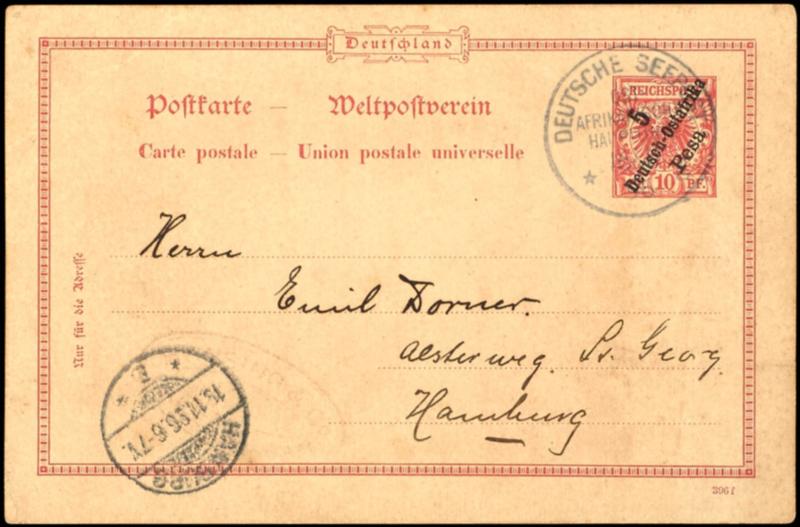 Deutschland
Postkarte — Weltpostverein
Carte postale — Union postale universelle
DEUTSCHE SEEPOST
AFRIK
HAU
REICHSPOST
5
Deutsch-Ostafrika
Pesa
10 PF.
Herrn
Emil Dorner.
Alsterweg. St. Georg
Hamburg
Nur für die Adresse
HAMBURG
13.11.96.6-7V.
3961